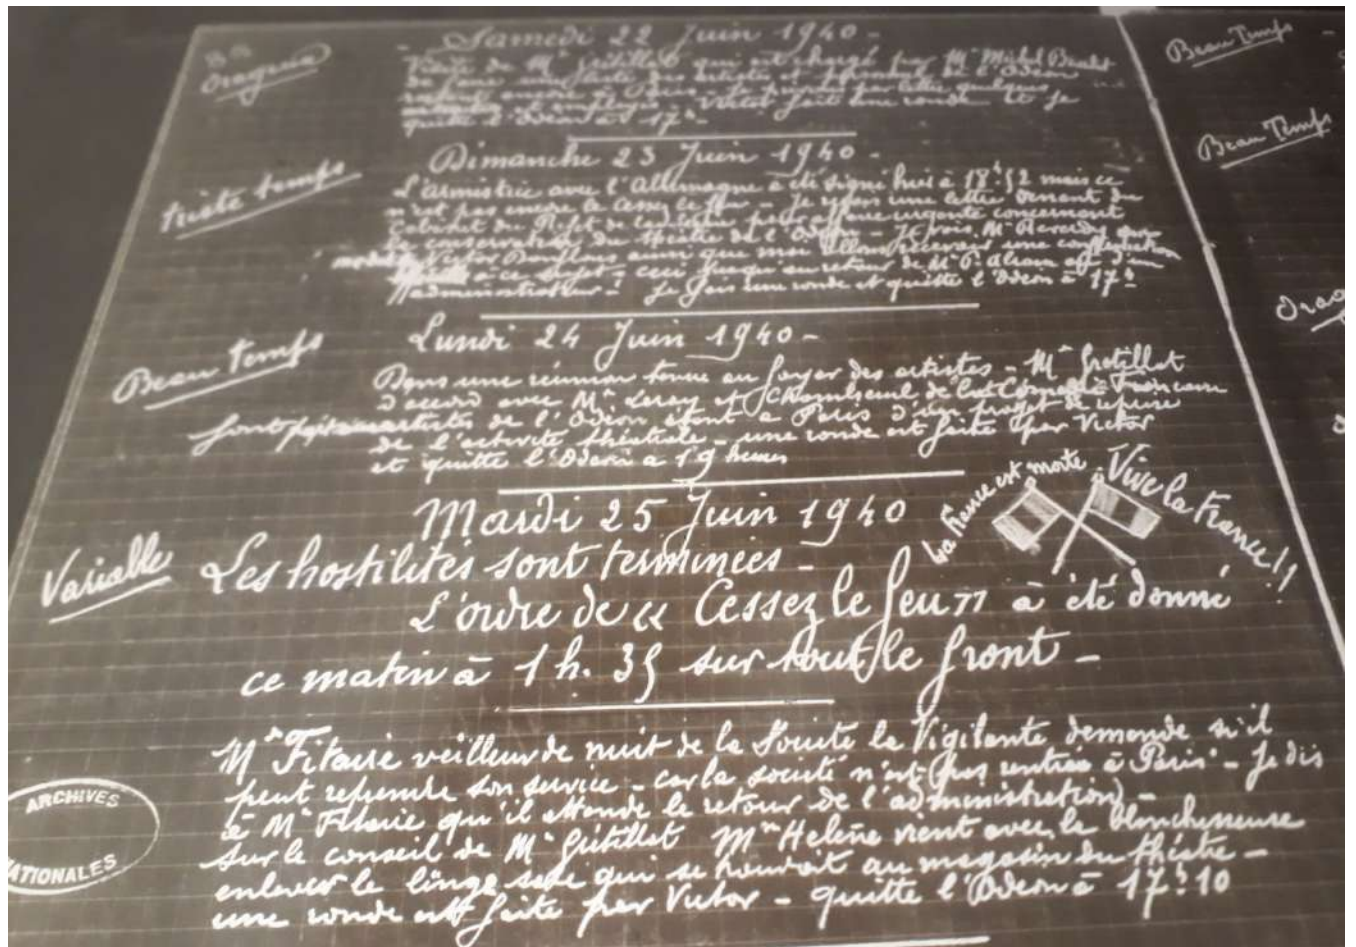 Orageux
Samedi 22 Juin 1940 -
Visite de Mr Grétillat qui est chargé par Mr Michel
de faire une liste des artistes et personnel de l'Odéon
encore à Paris - Je préviens par lettre quelques
artistes et employés - Victor fait une ronde et je
quitte l'Odéon à 17h -
triste temps
Dimanche 23 Juin 1940 -
L'armistice avec l'Allemagne a été signé hier à 18h.52 mais ce
n'est pas encore le Cessez le feu - Je reçois une lettre venant du
Cabinet du Préfet de pour affaire urgente concernant
la conservation du théâtre de l'Odéon - Je vois Mr que
Victor ainsi que moi allons recevoir une
à ce sujet - ceci jusqu'au retour de Mr P. Abram ou d'un
administrateur - Je fais une ronde et quitte l'Odéon à 17h
Beau temps
Lundi 24 Juin 1940 -
Dans une réunion tenue au foyer des artistes - Mr Grétillat
d'accord avec Mr Leroy et Chambreuil de la Comédie Française
font artistes de l'Odéon étant à Paris d'un projet de reprise
de l'activité théâtrale - une ronde est faite par Victor
et quitte l'Odéon à 19 heures
La France est morte. Vive la France!!
Mardi 25 Juin 1940
Variable
Les hostilités sont terminées -
L'ordre de "Cessez le feu" a été donné
ce matin à 1 h. 35 sur tout le front -
Mr Fitaire veilleur de nuit de la Société la Vigilante demande s'il
peut reprendre son service - car la société n'est pas rentrée à Paris - Je dis
à Mr Fitaire qu'il attende le retour de l'administration -
Sur le conseil de Mr Grétillat Mme Helène vient avec la blanchisseuse
enlever le linge sale qui se trouvait au magasin du théâtre -
une ronde est faite par Victor - quitte l'Odéon à 17h10
ARCHIVES
NATIONALES
Beau Temps -
Beau Temps
Orag